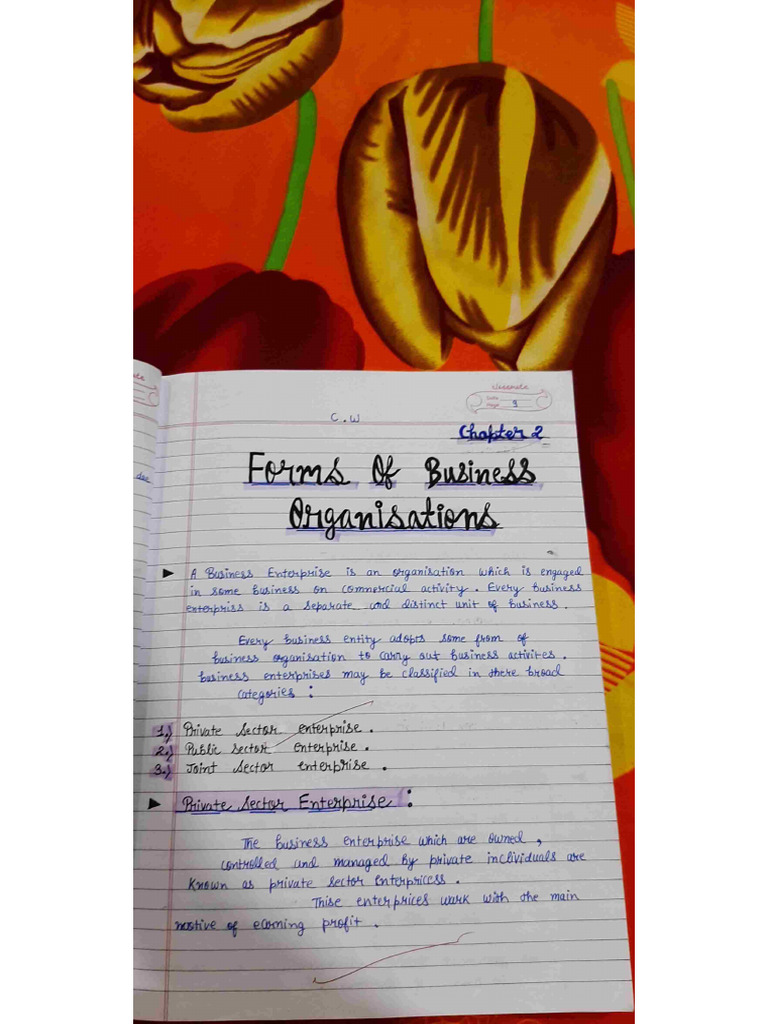 classmate
Date
Page 9
C.W
Chapter 2
Forms Of Business
Organisations
A Business Enterprise is an organisation which is engaged
in some business on commercial activity. Every business
enterpriss is a separate and distinct unit of business.
Every business entity adopts some from of
business organisation to carry out business activites.
business enterprises may be classified in there broad
categories :
1.) Private Sector enterprise.
2.) Public sector enterprise.
3.) Joint Sector enterprise.
Private Sector Enterprise :
The business enterprise which are owned,
controlled and managed by private inclividuals are
known as private sector enterpricess.
Thise enterprices work with the main
motive of earning profit.